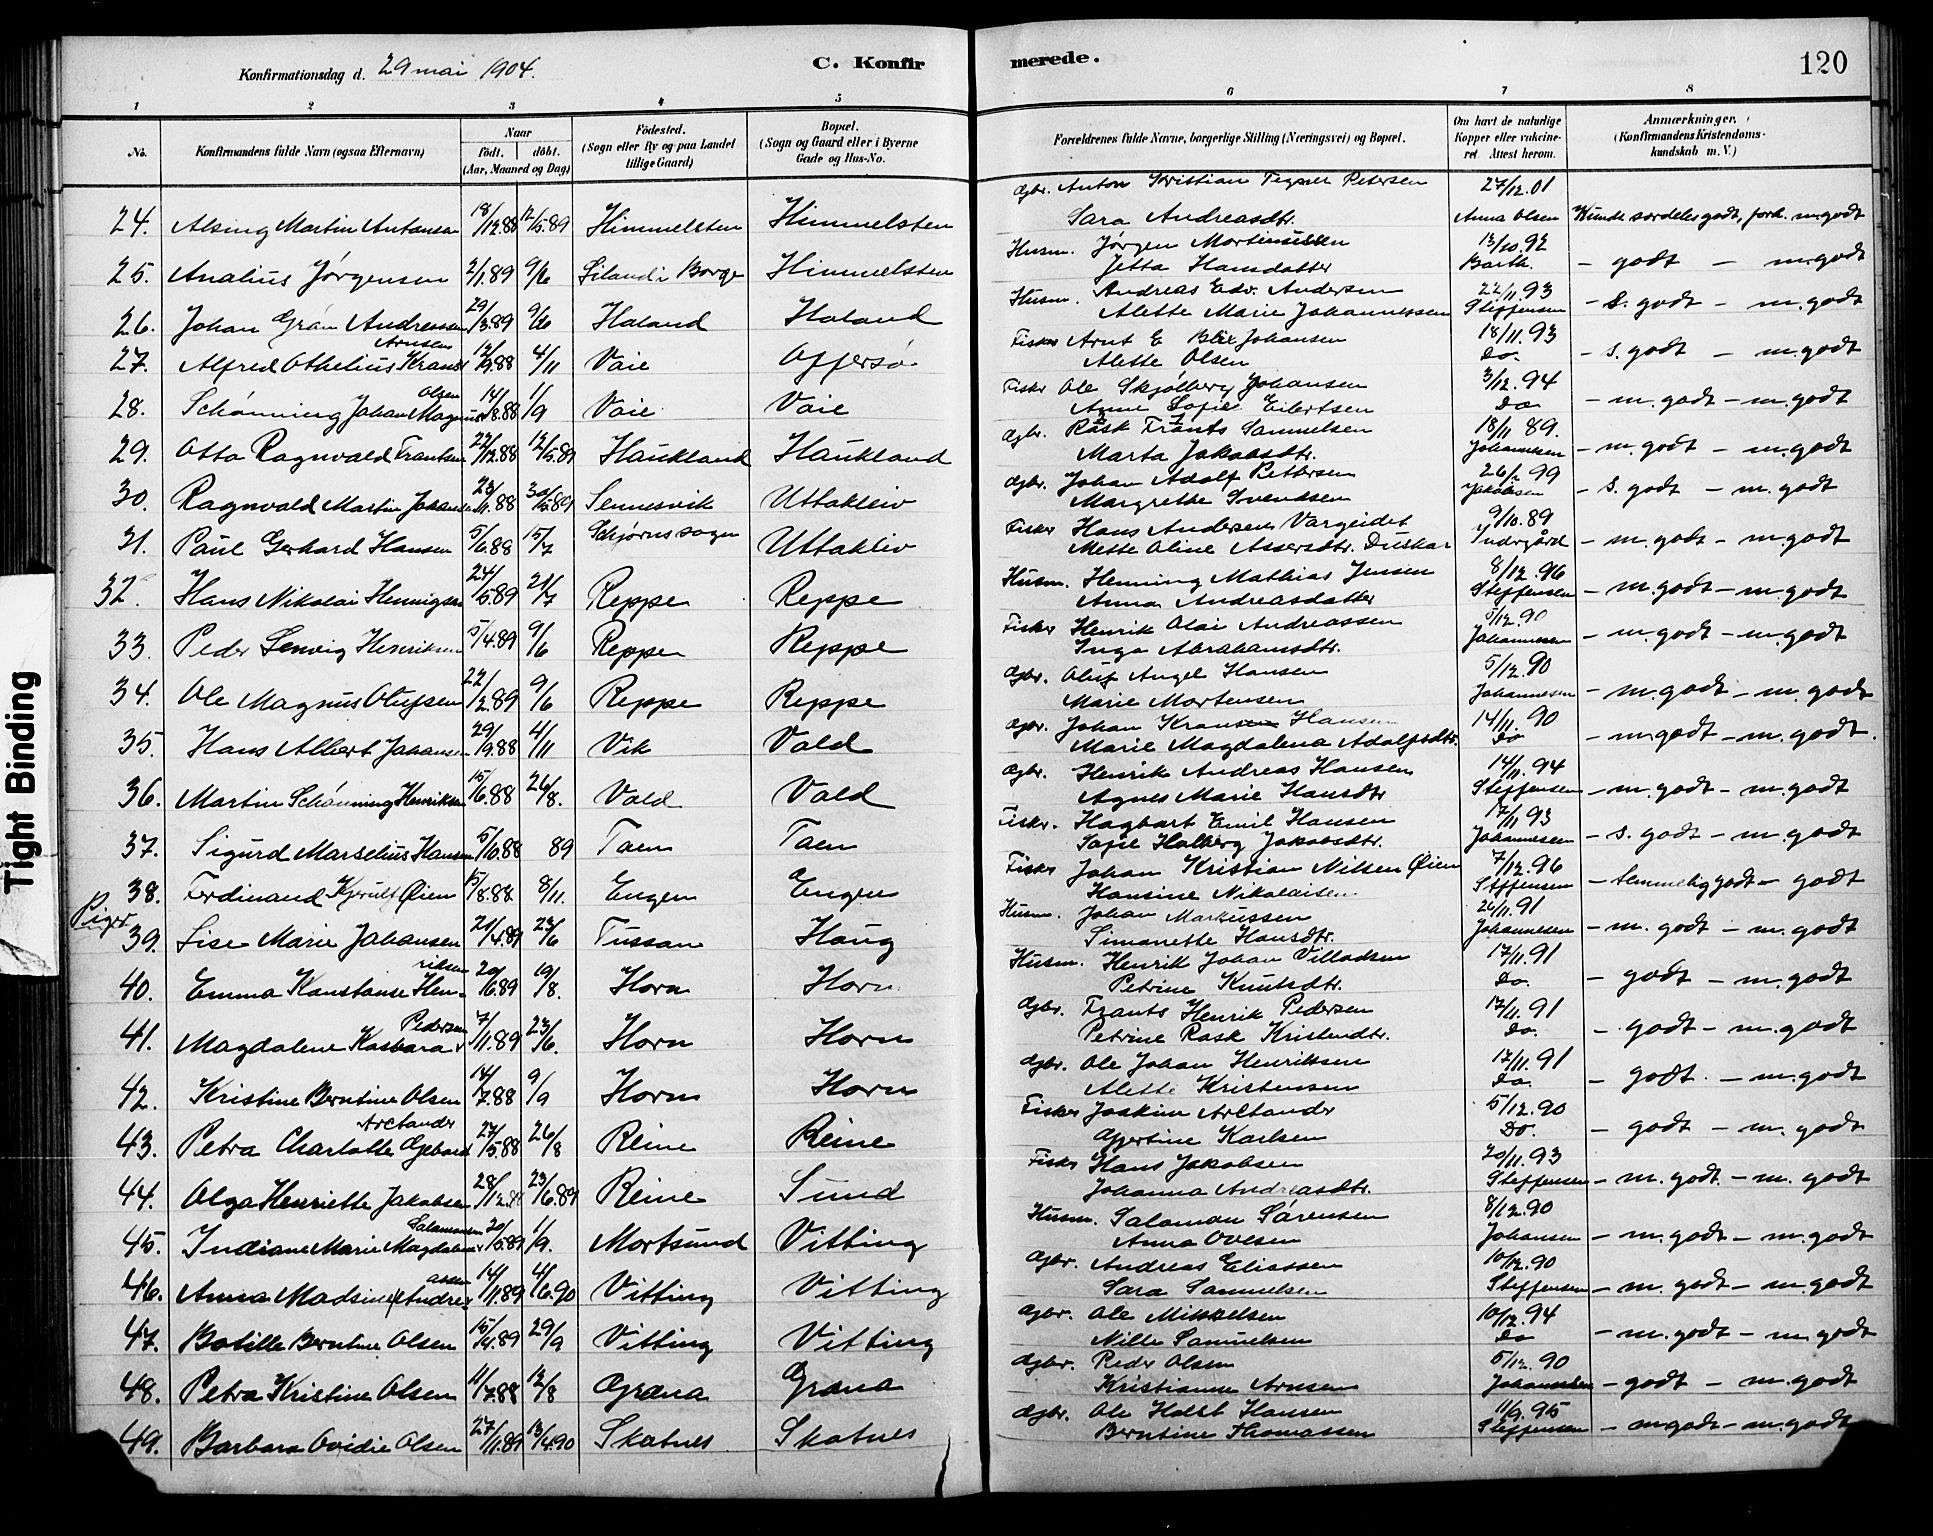 Konfirmationsdag d. 29 mai 1904. C. Konfir merede. 120
1 2 3 4 5 6 7 8
No. Konfirmandens fulde Navn (ogsaa Efternavn) Naar Födt. döbt. (Aar, Maaned og Dag) Födested. (Sogn eller By og paa Landet tillige Gaard) Bopæl. (Sogn og Gaard eller i Byerne Gade og Hus-No. Forældrenes fulde Navne, borgerlige Stilling (Næringsvei) og Bopæl. Om havt de naturlige Kopper eller vakcineret Attest herom. Anmærkninger. (Konfirmandens Kristendomskundskab m. V.)
Gbr. Anton Kristian Tegner Petersen 27/12.01
24. Alsing Martin Antonsen 18/12.88 12/5.89 Himmelsten Himmelsten Sara Andreasdtr. Anna Olsen Kundsk. særdeles godt, forh. m. godt
Husm. Jørgen Mortinussen 13/10.92
25. Analius Jørgensen 2/1.89 9/6 Siland i Borge Himmelsten Jetta Hansdatter Barth. – godt – m. godt
Husm. Andreas Edv. Andersen 22/11.93
26. Johan Grøn Andreassen 29/3.89 9/6 Holand Holand Alette Marie Johannessen Steffensen – s. godt – m. godt
Arnsen Fisker Arnt E Blix Johansen 18/11.93
27. Alfred Othelius Krans 12/9.88 4/11 Vaie Offersø Alette Olsen Do. – s. godt – m. godt
Olsen Fisker Ole Skjølberg Johansen 3/12.94
28. Schønning Johan Magnus 14/8.88 1/9 Vaie Vaie Anne Sofie Eilertsen Do – m. godt – m. godt
Gbr. Rask Frants Samuelsen 18/11 89.
29. Otto Ragnvald Frantsen 22/12.88 12/5.89 Haukland Haukland Marta Jakobsdtr. Johannesen – m. godt – m. godt
Gbr. Johan Adolf Pettersen 26/2 99
30. Ragnvald Martin Johansen 23/11.88 30/5.89 Sennesvik Uttakleiv Margrethe Svendsen Jakobsen – s. godt – m. godt
Fisker Hans Andersen Vargeidet 9/10.89
31. Paul Gerhard Hansen 5/6.88 15/7 Schjørns sogn Uttakliv Mette Oline Assersdtr. Yndergård – m. godt – m. godt
Husm. Henning Mathias Jensen 8/12.96
32. Hans Nikolai Hennigsen 24/5.89 21/7 Reppe Reppe Anna Andreasdatter Steffensen – m. godt – m. godt
Fisker Henrik Olai Andreassen 5/12.90
33. Peder Senvig Henriksen 5/4.89 9/6 Reppe Reppe Inga Abrahamsdtr. Johannesen – m. godt – m. godt
Gbr. Oluf Angel Hansen 5/12.90
34. Ole Magnus Olufsen 22/2.89 9/6 Reppe Reppe Marie Mortensen Johannesen – m. godt – m. godt
Gbr. Johan Kransen Hansen 14/11.90
35. Hans Albert Johansen 29/9.88 4/11 Vik Vold Marie Magdalena Adolfsdtr. Do – m. godt – m. godt.
Gbr. Henrik Andreas Hansen 14/11.94
36. Martin Schønning Henriksen 15/6.88 26/8. Vold Vold Agnes Marie Hansdtr Steffensen – m. godt – m. godt
Fisker. Hagbart Emil Hansen 17/11 93
37. Sigurd Marselius Hansen 5/10.88 89 Taen Taen Sofie Holberg Jakobsdtr. Johannesen – s. godt – m. godt
Fisker Johan Kristian Nilsen Øien 7/12.96
38. Ferdinand Kjerulf Øien 15/8.88 8/11. Engen Engen Hansine Nikolaisen Steffensen – temmelig godt – godt
Piger Husm. Johan Markussen 26/11.91
39. Lise Marie Johansen 21/4.89 23/6 Tussan Haug Simanette Hansdtr. Johannesen – m. godt – m. godt
riksen Husm. Henrik Johan Villadsen 17/11.91
40. Emma Konstanse Hen- 20/6.89 19/8. Horn Horn Petrine Knutsdtr. Do. – godt – m. godt
Pedersen Gbr. Frants Henrik Pedersen 17/11.91
41. Magdalene Kasbara 7/11.89 23/6. Horn Horn Petrine Rask Kristendtr. Do. – godt – m. godt
Gbr. Ole Johan Henriksen 17/11.91
42. Kristine Berntine Olsen 14/7.88 9/9 Horn Horn Alette Kristensen Do. – godt. – m. godt
Arctander Fisker Joakim Arctander 5/12.90
43. Petra Charlotte Gjebord 27/5.88 26/8 Reine Reine Gjertine Karlsen Do. – godt – m. godt
Fisker Hans Jakobsen 20/11.93
44. Olga Henriette Jakobsen 28/12.88 23/6.89 Reine Sund Johanna Andreasdtr. Steffensen – m. godt. – m. godt
Salamonsen Husm. Salomon Sørensen 8/12.90
45. Indiane Marie Magdalene 20/5.89 1/9. Mortsund Vitting Anna Ovesen Johansen – m. godt – m. godt
assen Gbr. Andreas Eliassen 10/12.90
46. Anna Madsine Andre- 14/11.89 4/6.90 Vitting Vitting Sara Samuelsen Steffensen – m. godt – m. godt
Gbr. Ole Mikkelsen 10/12.94
47. Botille Berntine Olsen 15/4.89 29/9 Vitting Vitting Nille Samuelsen Do – m. godt – m. godt
Gbr. Peder Olsen 5/12.90
48. Petra Kristine Olsen 11/7.88 12/8 Grøna Grøna Kristianne Arnsen Johannesen – godt – m. godt
Gbr. Ole Holst Hansen 11/9.95
49. Barbara Ovidie Olsen 27/11.89 13/4.90 Skotnes Skotnes Berntine Thomassen Steffensen – m. godt – m. godt
Tight Binding